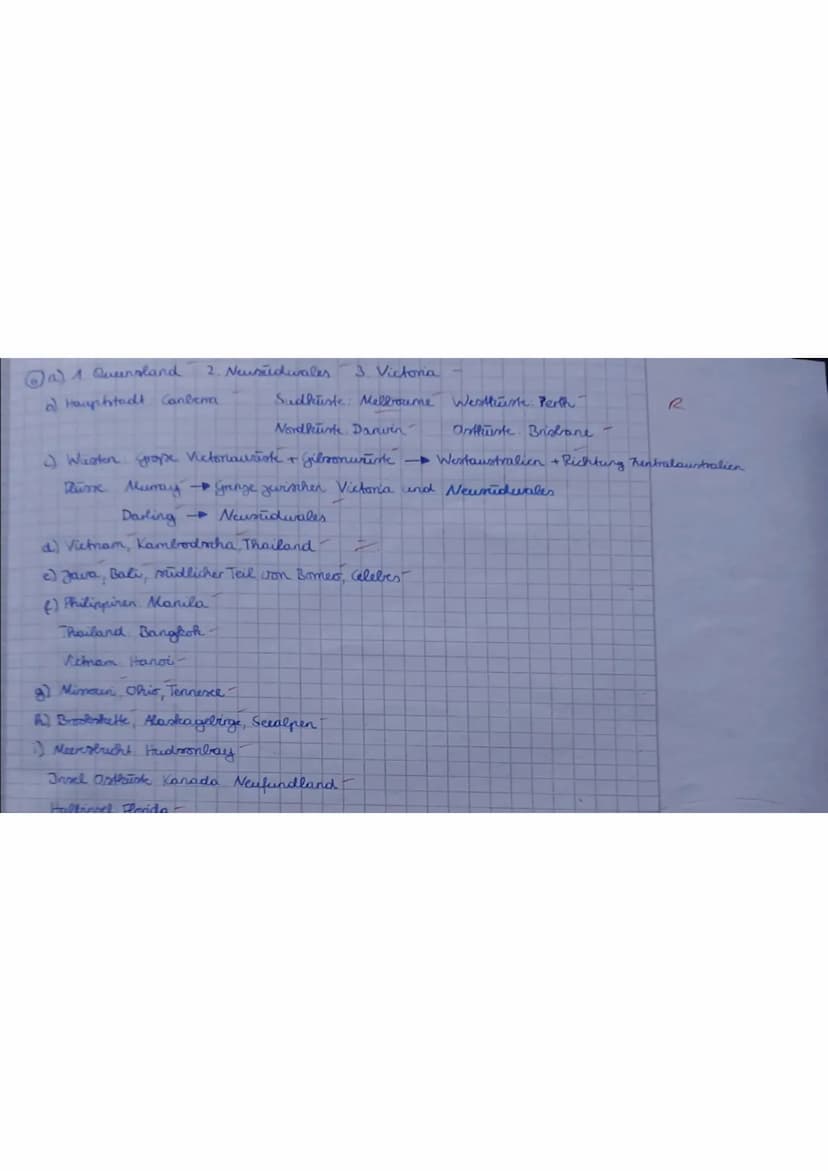 ⑥ a) 1. Queensland 2. Neusüdwales 3. Victoria
b) Hauptstadt Canberra Südküste: Mellboume Westküste: Perth R
Nordküste: Darwin Ostküste: Brisbane
c) Wüsten: große Victoriawüste + Gibsonwüste → Westaustralien + Richtung Zentralaustralien
Flüsse: Murray → Grenze zwischen Victoria und Neusüdwales
Darling → Neusüdwales
d) Vietnam, Kambodscha, Thailand
e) Java, Bali, südlicher Teil von Borneo, Celebes
f) Philippinen: Manila
Thailand: Bangkok
Vietnam: Hanoi
g) Missouri, Ohio, Tennesee
h) Brookskette, Alaskagebirge, Seealpen
i) Meeresbucht: Hudsonbay
Insel Ostküste Kanada: Neufundland
Halbinsel: Florida